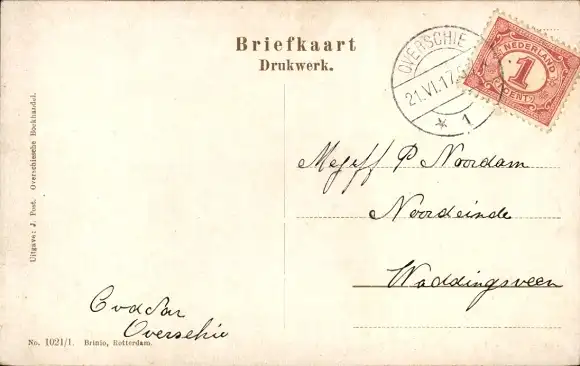 Briefkaart
Drukwerk.
OVERSCHIE
21.VI.17.
* 1
NEDERLAND
1
CENT
Mejeff P Noordam
Noordeinde
Waddingsveen
Uitgave: J. Post. Overschiesche Boekhandel.
Overschie
No. 1021/1. Brinio, Rotterdam.